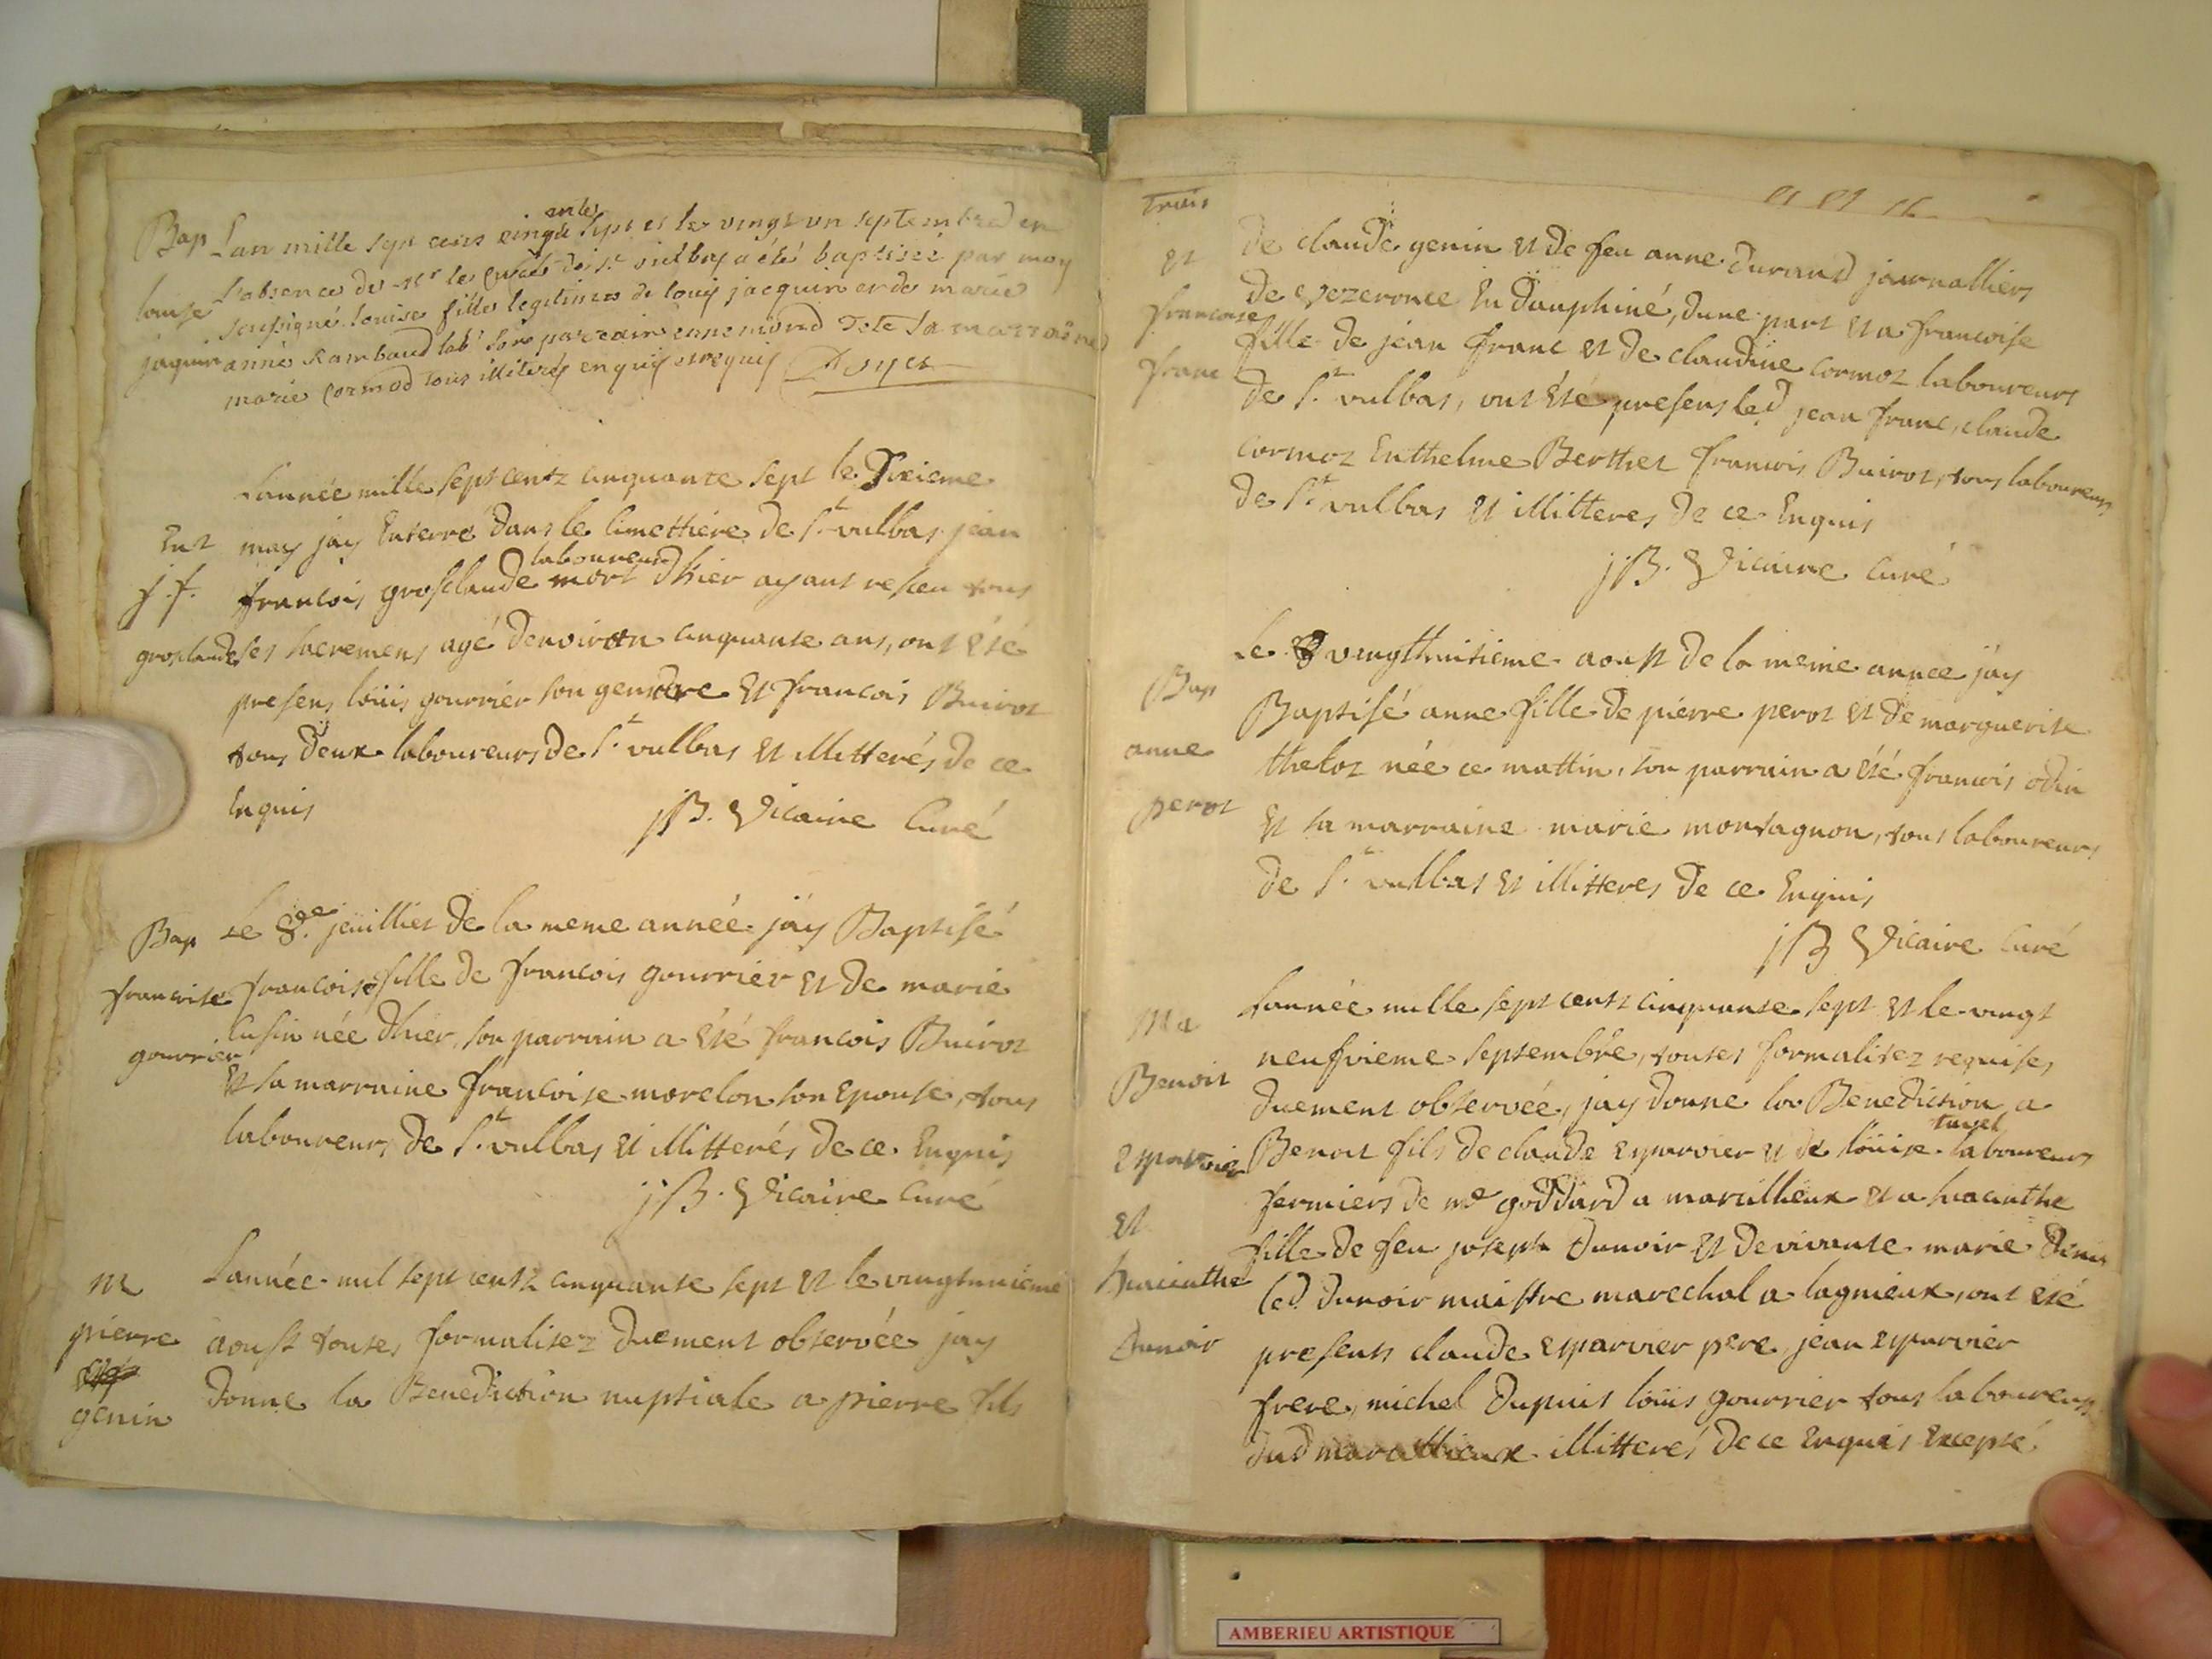 Bap Lan mille sept cens cinqu ante sept et le vingt un septembre en
l'absence de Mr le Curé de St vulbas a été baptisée par moy
louise soussigné louise fille legitime de louis jacquin et de marie
jaquin anne Rambaud lab. son parrain ennemond Tete sa marraine
marie Cormod tous illiterés enquis et requis
L'année mille sept centz cinquante sept le Dixieme
Ent may jay Enterré dans le Cimettiere de St vulbas jean
laboureur
j. f. francois grosclaude mort dhier ayant reseu tous
grosclaude ses sacremens agé denviron cinquante ans, ont été
presens loüis gourrier son gendre Et francois Buirot
tous deux laboureurs de St vulbas Et illitterés de ce
Enquis jB. Vicaire Curé
Bap Le 8de jeuillier de la meme année jáy Baptisé
francoise francoise fille de francois gourrier Et de marie
Cusin née dhier, son parrain a été francois Buirot
gourrier
Et sa marraine francoise morelon son Epouse, tous
laboureurs de St vulbas Et illitterés de ce Enquis
jB. Vicaire Curé
M L'année mil sept centz cinquante sept Et le vingtunieme
pierre aoust toutes formalitez duement observée jay
donne la Benediction nuptiale a pierre fils
genin
trois
Et de claude genin Et de feu anne durand journalliers
de vezeronce En Dauphiné, dune part Et a francoise
francoise
fille de jean franc Et de claudine Cormoz laboureurs
franc
de St vulbas, ont Eté presens led jean franc, claude
Cormoz Enthelme Berthet francois Buirot, tous laboureurs
de St vulbas Et illitteres de ce Enquis
jB. Vicaire Curé
Le vingthuitieme aoust de la meme année jáy
Bap
Baptisé anne fille de pierre perot Et de marguerite
anne
née ce mattin, son parrain a été francois odin
perot
Et sa marraine marie montagnon, tous laboureurs
de St vulbas Et illitteres de ce Enquis
jB Vicaire Curé
Ma L'année mille sept centz cinquante sept Et le vingt
neufvieme septembre, toutes formalitez requises
Benoit
duement observée, jay donne la Benediction a
tavel
Eparvier Benoit fils de claude Eparvier Et de loüise laboureurs
fermiers de mr goddard a marcillieux Et a hiacinthe
Et
fille de feu joseph dunoir Et de vivante marie
hiacinthe
led. dunoir maistre marechal a lagnieux, ont eté
dunoir presents claude Eparvier pere, jean Eparvier
frere, michel dupuis loüis gourrier tous laboureurs
dud marcillieux illitterés de ce Enquis Excepté
AMBERIEU ARTISTIQUE